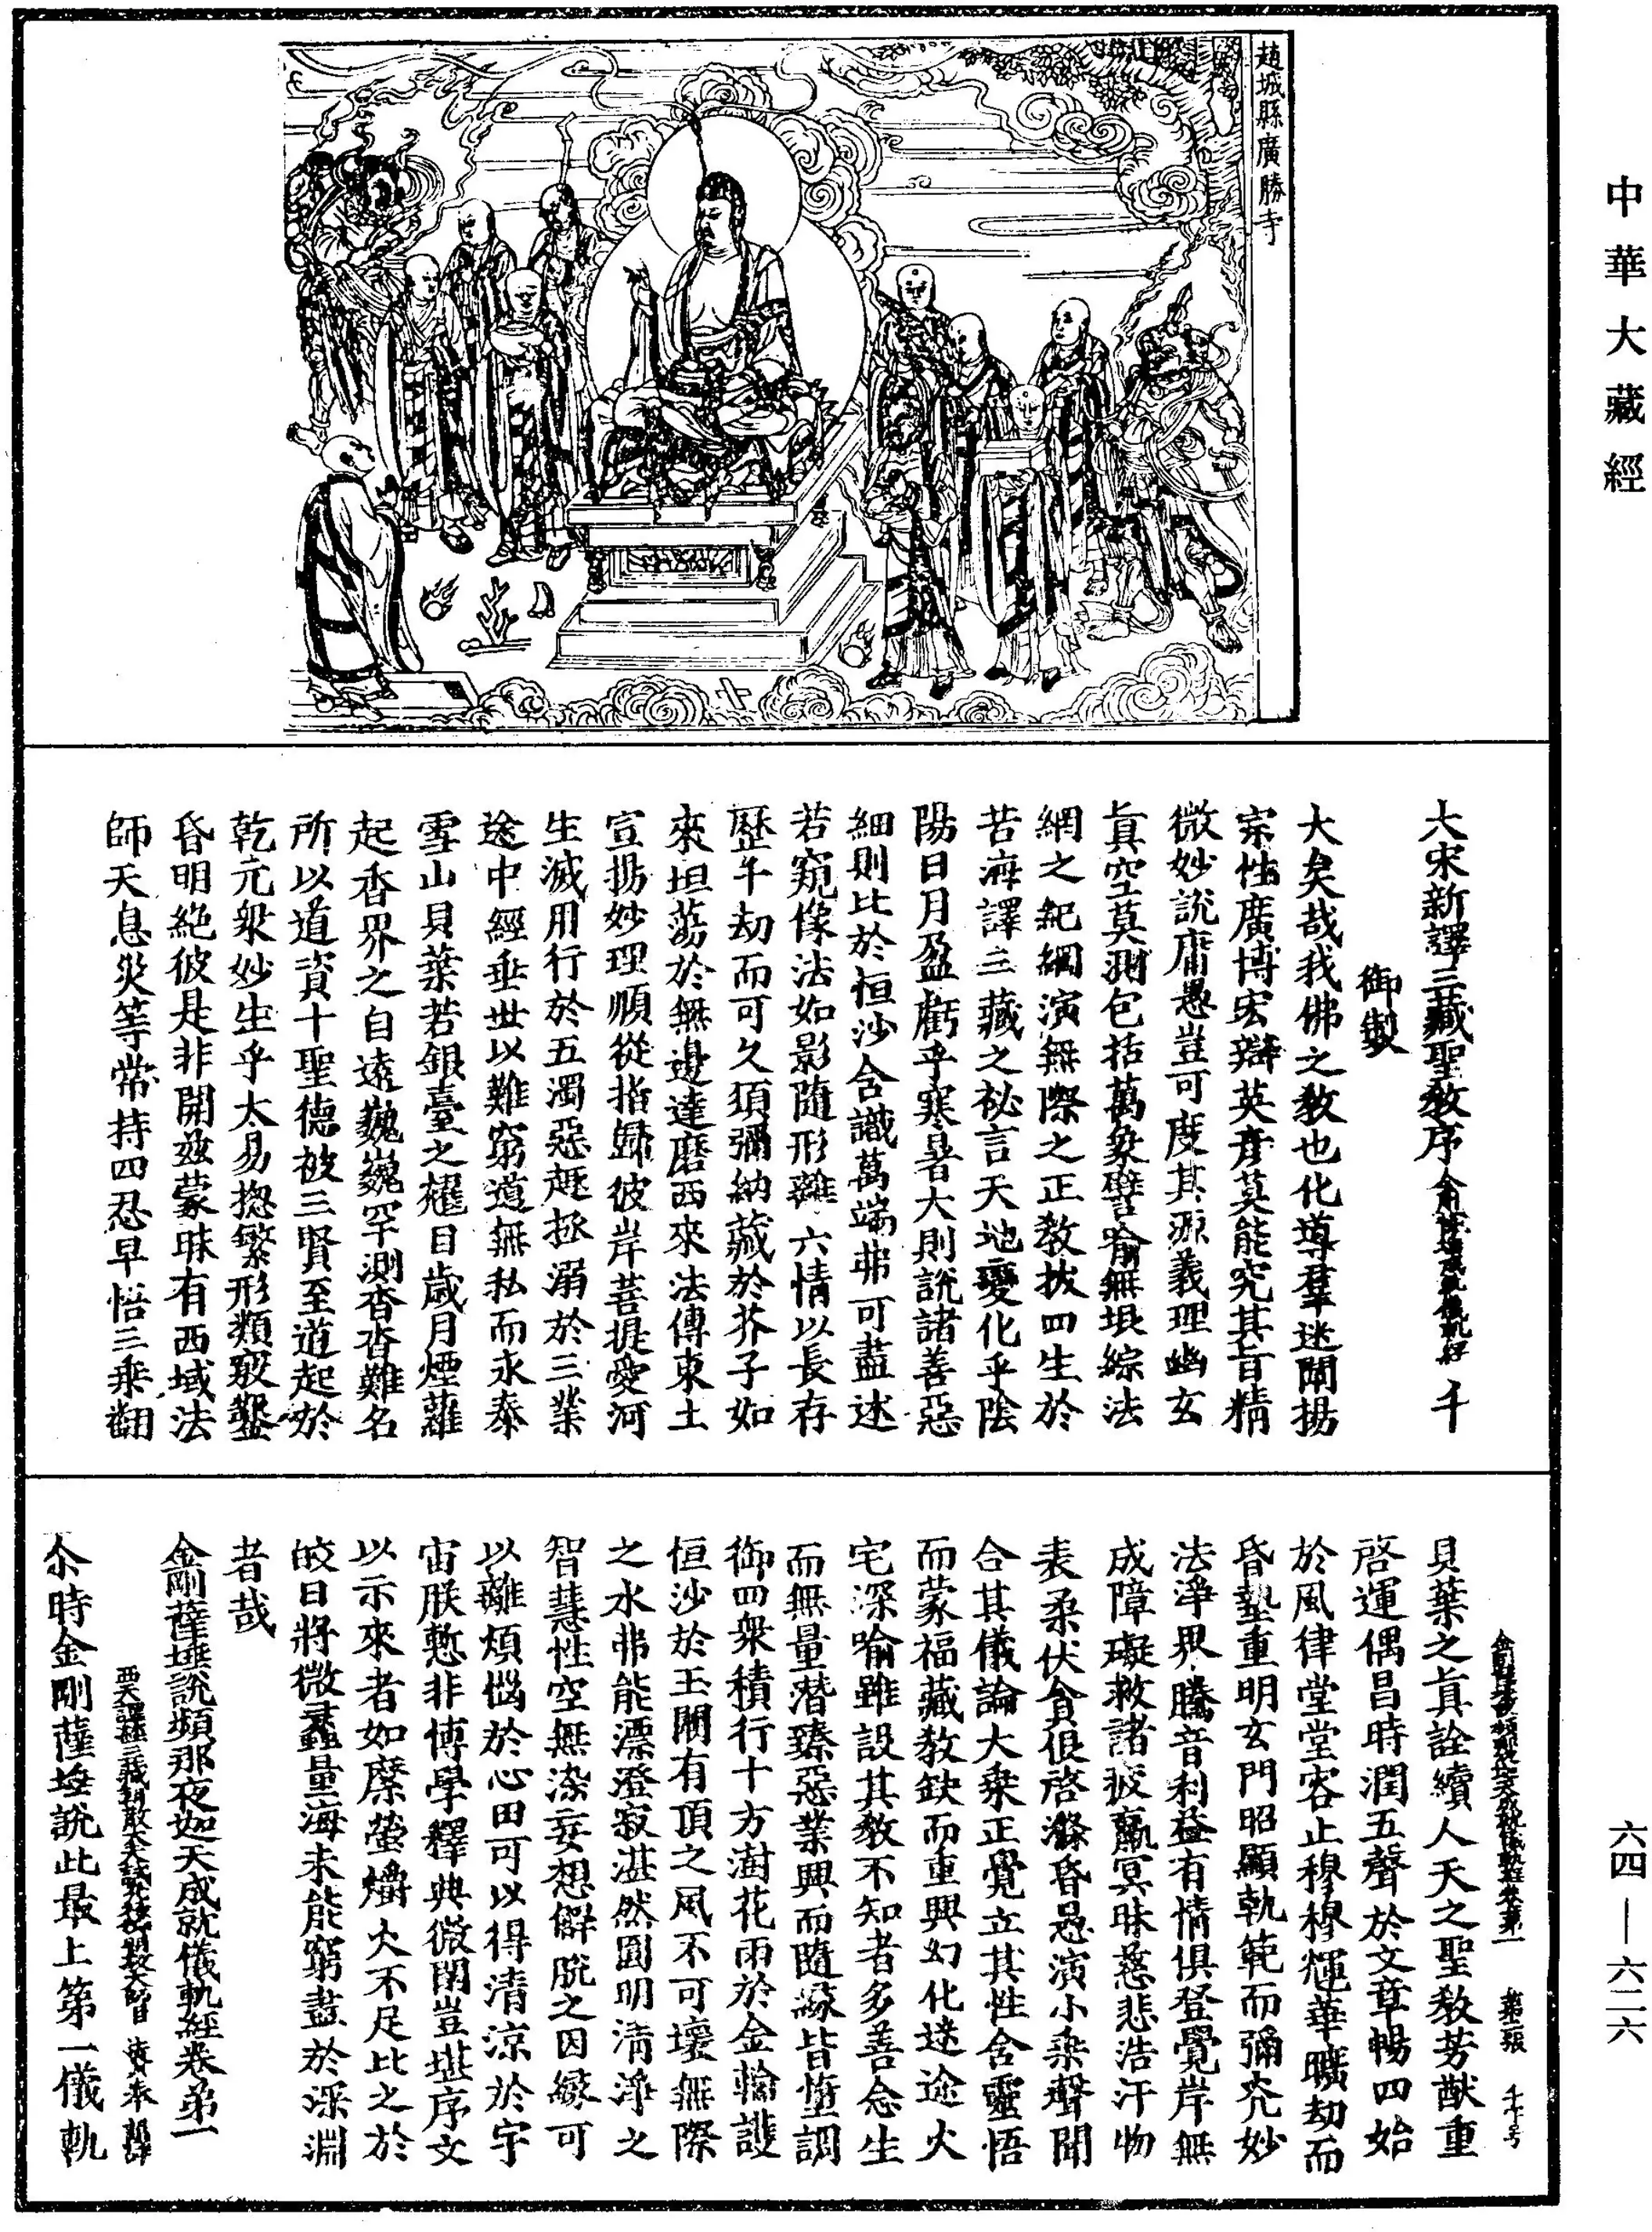 中華大藏經
趙城縣廣勝寺
大宋新譯三藏聖教序 千
御製
大矣哉我佛之教也化導羣迷闡揚
宗性廣博宏辯英彥莫能究其旨精
微妙說庸愚豈可度其源義理幽玄
真空莫測包括萬象譬喻無垠綜法
網之紀綱演無際之正教拔四生於
苦海譯三藏之祕言天地變化乎陰
陽日月盈虧乎寒暑大則說諸善惡
細則比於恒沙含識萬端弗可盡述
若窺像法如影隨形離六情以長存
歷千劫而可久須彌納藏於芥子如
來坦蕩於無邊達磨西來法傳東土
宣揚妙理順從指歸彼岸菩提愛河
生滅用行於五濁惡趣拯溺於三業
途中經垂世以難窮道無私而永泰
雪山貝葉若銀臺之耀目歲月煙蘿
起香界之自遠巍巍罕測杳杳難名
所以道資十聖德被三賢至道起於
乾元衆妙生乎太易揔繁形類竅鑿
昏明絕彼是非開茲蒙昧有西域法
師天息災等常持四忍早悟三乘翻
貝葉之真詮續人天之聖教芳猷重
啓運偶昌時潤五聲於文章暢四始
於風律堂堂容止穆穆輝華曠劫而
昏蟄重明玄門昭顯軌範而彌光妙
法淨界騰音利益有情俱登覺岸無
成障礙救諸疲羸冥昧慈悲浩汗物
表柔伏貪佷啓滌昏愚演小乘聲聞
合其儀論大乘正覺立其性含靈悟
而蒙福藏教缺而重興幻化迷途火
宅深喻雖設其教不知者多善念生
而無量潛臻惡業興而隨緣皆墮調
御四衆積行十方澍花雨於金輪護
恒沙於玉闕有頂之風不可壞無際
之水弗能漂澄寂湛然圓明清淨之
智慧性空無染妄想解脫之因緣可
以離煩惱於心田可以得清涼於宇
宙朕慙非博學釋典微閑豈堪序文
以示來者如縻螢爝火不足比之於
皎日將微蠡量海未能窮盡於深淵
者哉
金剛薩埵說頻那夜迦天成就儀軌經卷第一
西天譯經三藏朝散大夫試光祿卿明教大師 法賢奉 詔譯
尒時金剛薩埵說此最上第一儀軌
六四—六二六